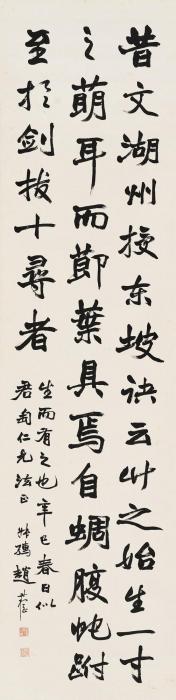 昔文湖州授东坡诀云竹之始生一寸
之萌耳而節葉具焉自蜩腹蛇蚹
至於剑拔十尋者
生而有之也辛巳春日似
君甸仁兄法正 趙